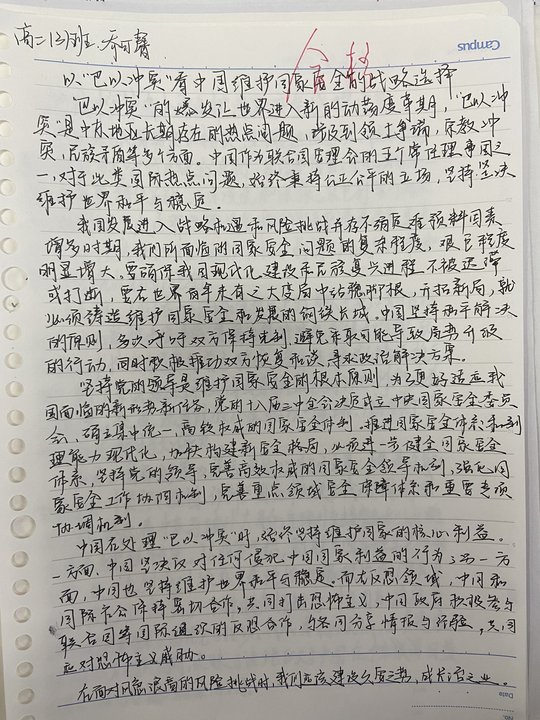 高二13班
Campus
以"巴以冲突"看中国维护国家安全的战略选择
"巴以冲突"的爆发让世界进入新的动荡变革期,"巴以冲
突"是中东地区长期存在的热点问题,涉及到领土争端,宗教冲
突,民族矛盾等多个方面。中国作为联合国安理会的五个常任理事国之
一,对于此类国际热点问题,始终秉持公正公平的立场,坚持坚决
维护世界和平与稳定。
我国发展进入战略机遇和风险挑战并存不确定难预料因素
增多时期,我们所面临的国家安全问题的复杂程度,艰巨程度
明显增大,要确保我国现代化建设和民族复兴进程不被迟滞
或打断,要在世界百年未有之大变局中站稳脚跟,开拓新局,就
必须铸造维护国家安全和发展的钢铁长城。中国坚持和平解决
的原则,多次呼吁双方保持克制,避免采取可能导致局势升级
的行动,同时积极推动双方恢复和谈,寻求政治解决方案。
坚持党的领导是维护国家安全的根本原则,为了更好适应我
国面临的新形势新任务,党的十八届三中全会决定成立中央国家安全委员
会,确立集中统一,高效权威的国家安全体制。推进国家安全体系和
理能力现代化,加快构建新安全格局,必须进一步健全国家安全
体系,坚持党的领导,完善高效权威的国家安全领导机制,强化国
家安全工作协调机制,完善重点领域安全保障体系和重要专项
协调机制。
中国在处理"巴以冲突"时,始终坚持维护国家的核心利益。
一方面,中国坚决反对任何侵犯中国国家利益的行为;另一方
面,中国也坚持维护世界和平与稳定。而在反恐领域,中国和
国际社会保持密切合作,共同打击恐怖主义,中国政府积极参与
联合国等国际组织的反恐合作,与各国分享情报与经验,共同
应对恐怖主义威胁。
在面对风急浪高的风险挑战时,我们应该建设久安之势,成长治之业。
Date
No.